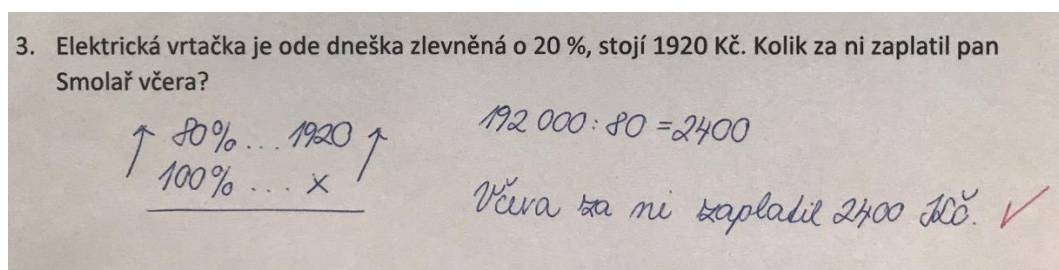 3. Elektrická vrtačka je ode dneška zlevněná o 20 %, stojí 1920 Kč. Kolik za ni zaplatil pan
Smolař včera?
80% ... 1920
100% ... x
192 000 : 80 = 2400
Včera za ni zaplatil 2400 Kč.